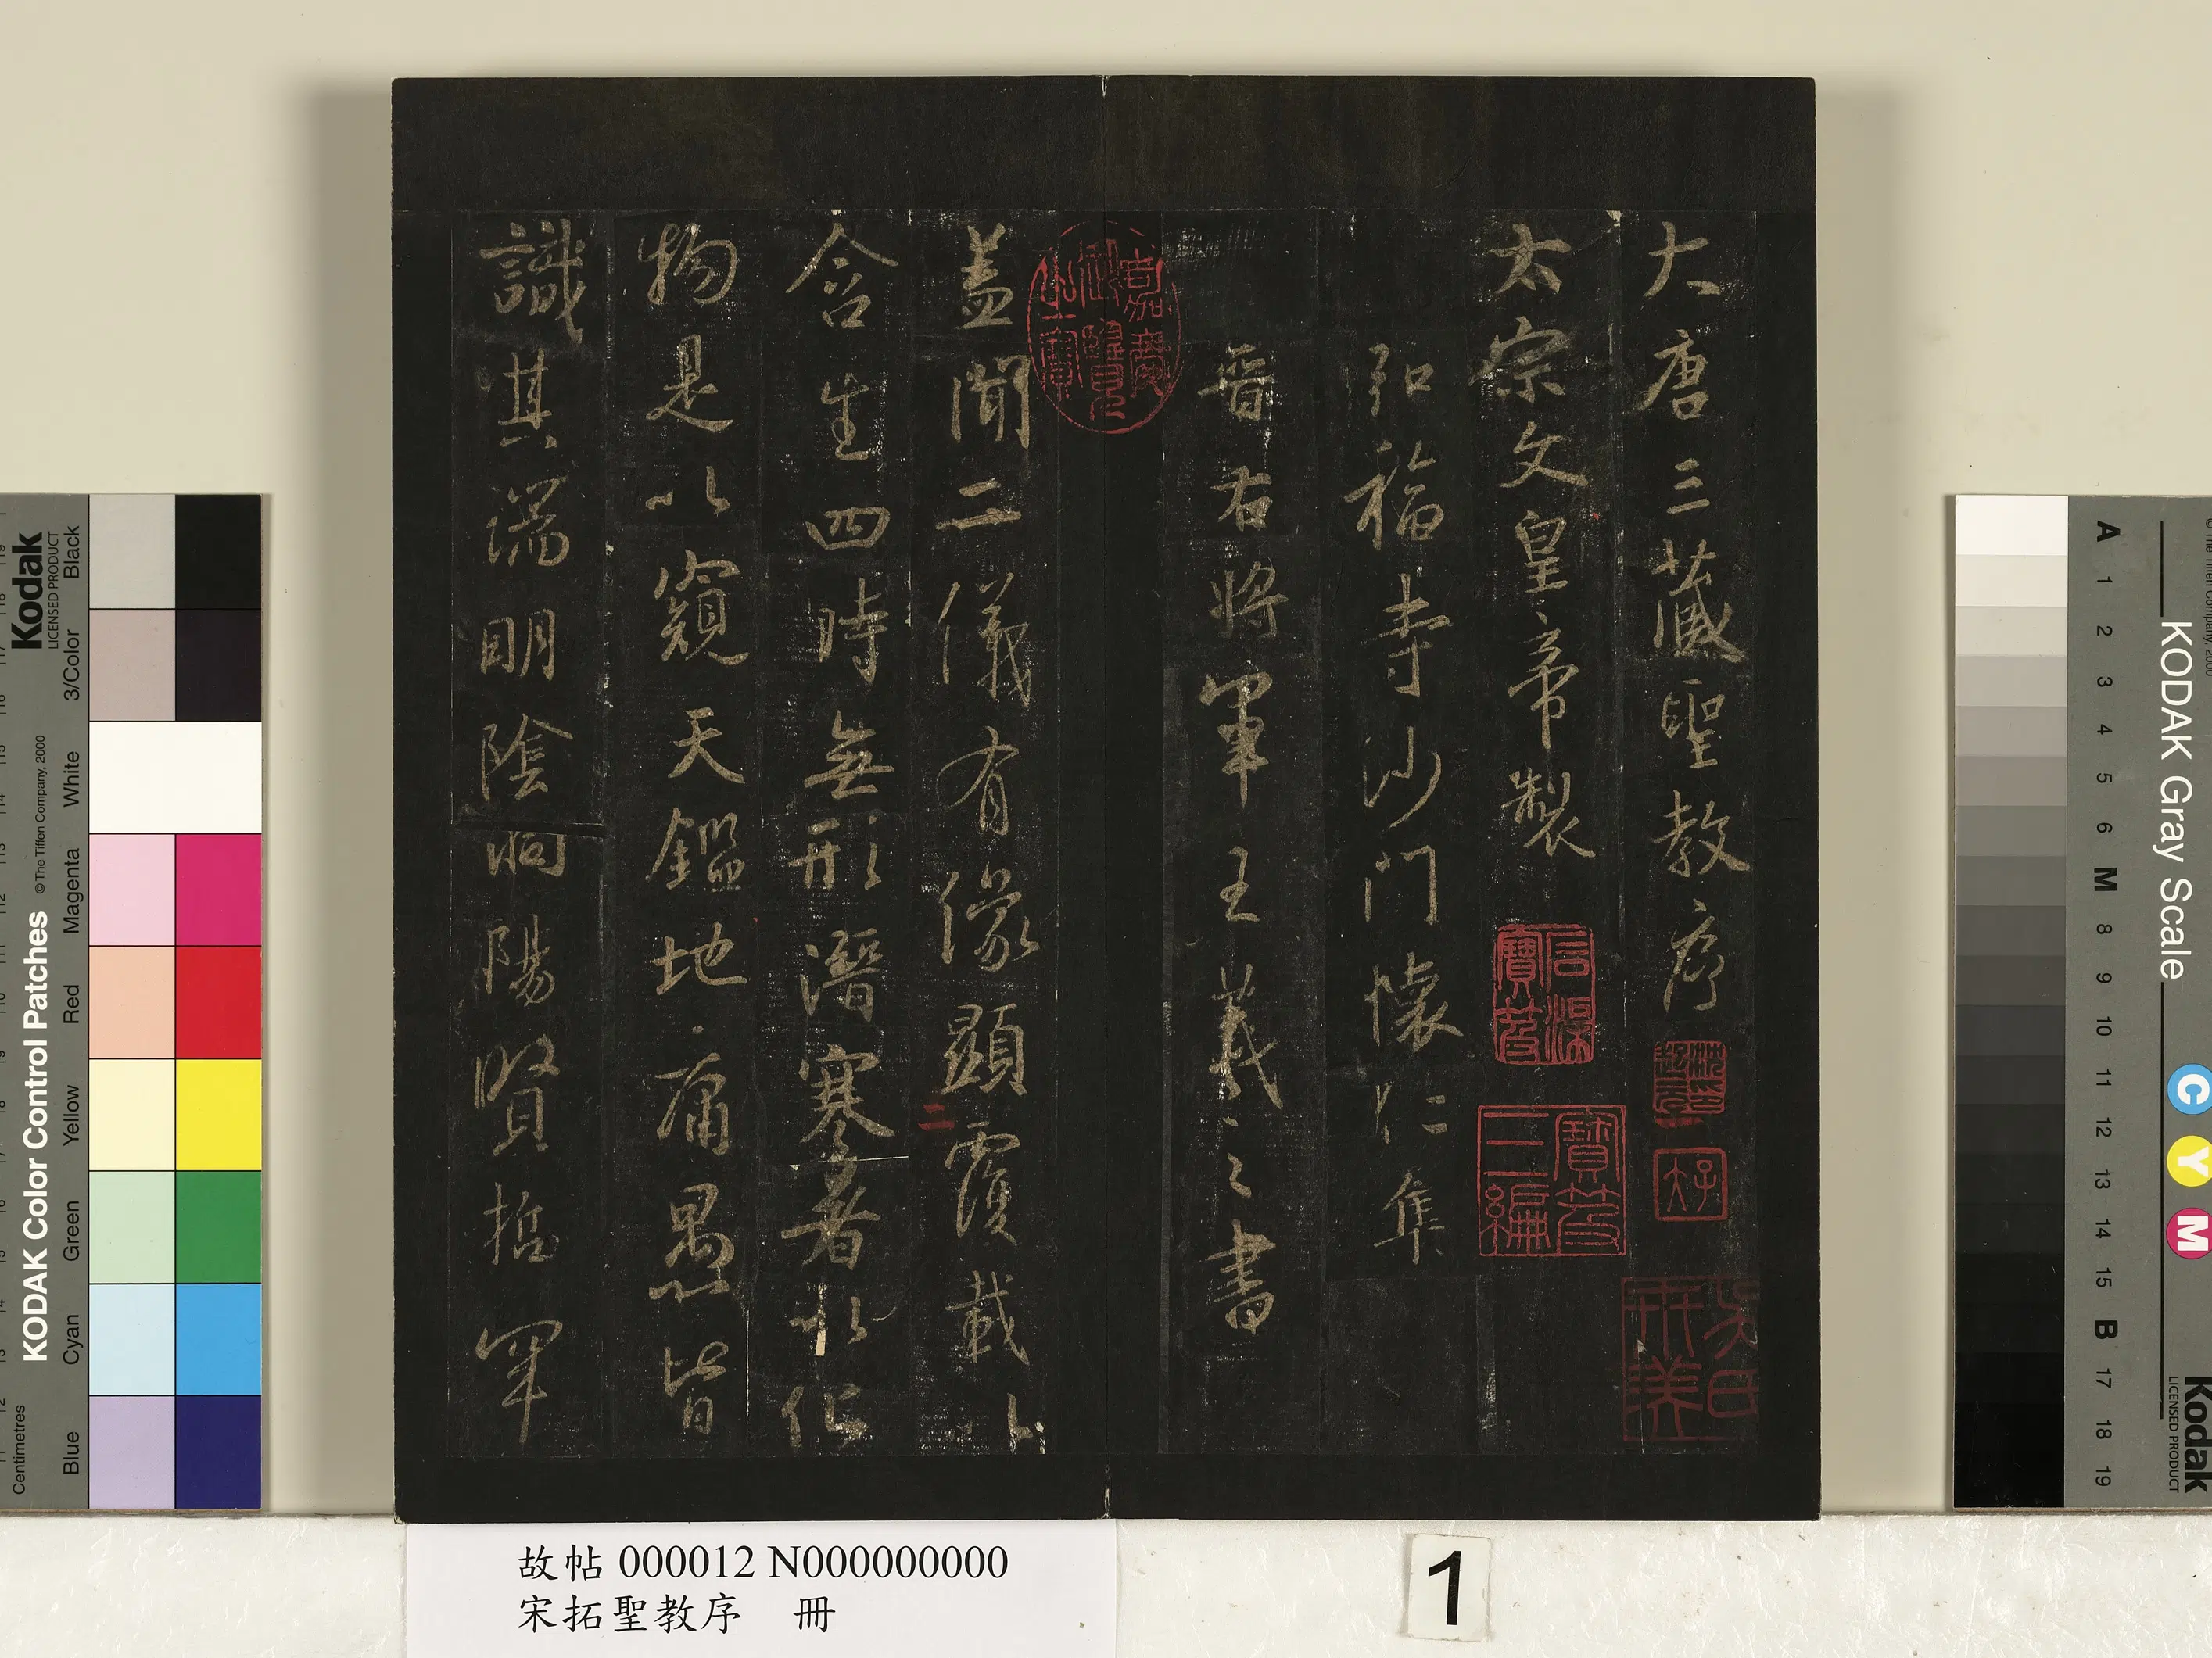 大唐三藏聖教序
太宗文皇帝製
弘福寺沙門懷仁集
晉右將軍王羲之書
蓋聞二儀有像顯覆載以
含生四時無形潛寒暑以化
物是以窺天鑑地庸愚皆
識其端明陰洞陽賢哲罕
二
嘉慶御覽之寶
石渠寶笈
寶笈三編
故帖 000012 N000000000
宋拓聖教序 冊
1
Kodak
LICENSED PRODUCT
KODAK Color Control Patches
©The Tiffen Company, 2000
Centimetres
Blue
Cyan
Green
Yellow
Red
Magenta
White
3/Color
Black
KODAK Gray Scale
A 1 2 3 4 5 6 M 8 9 10 11 12 13 14 15 B 17 18 19
C
Y
M
Kodak
LICENSED PRODUCT